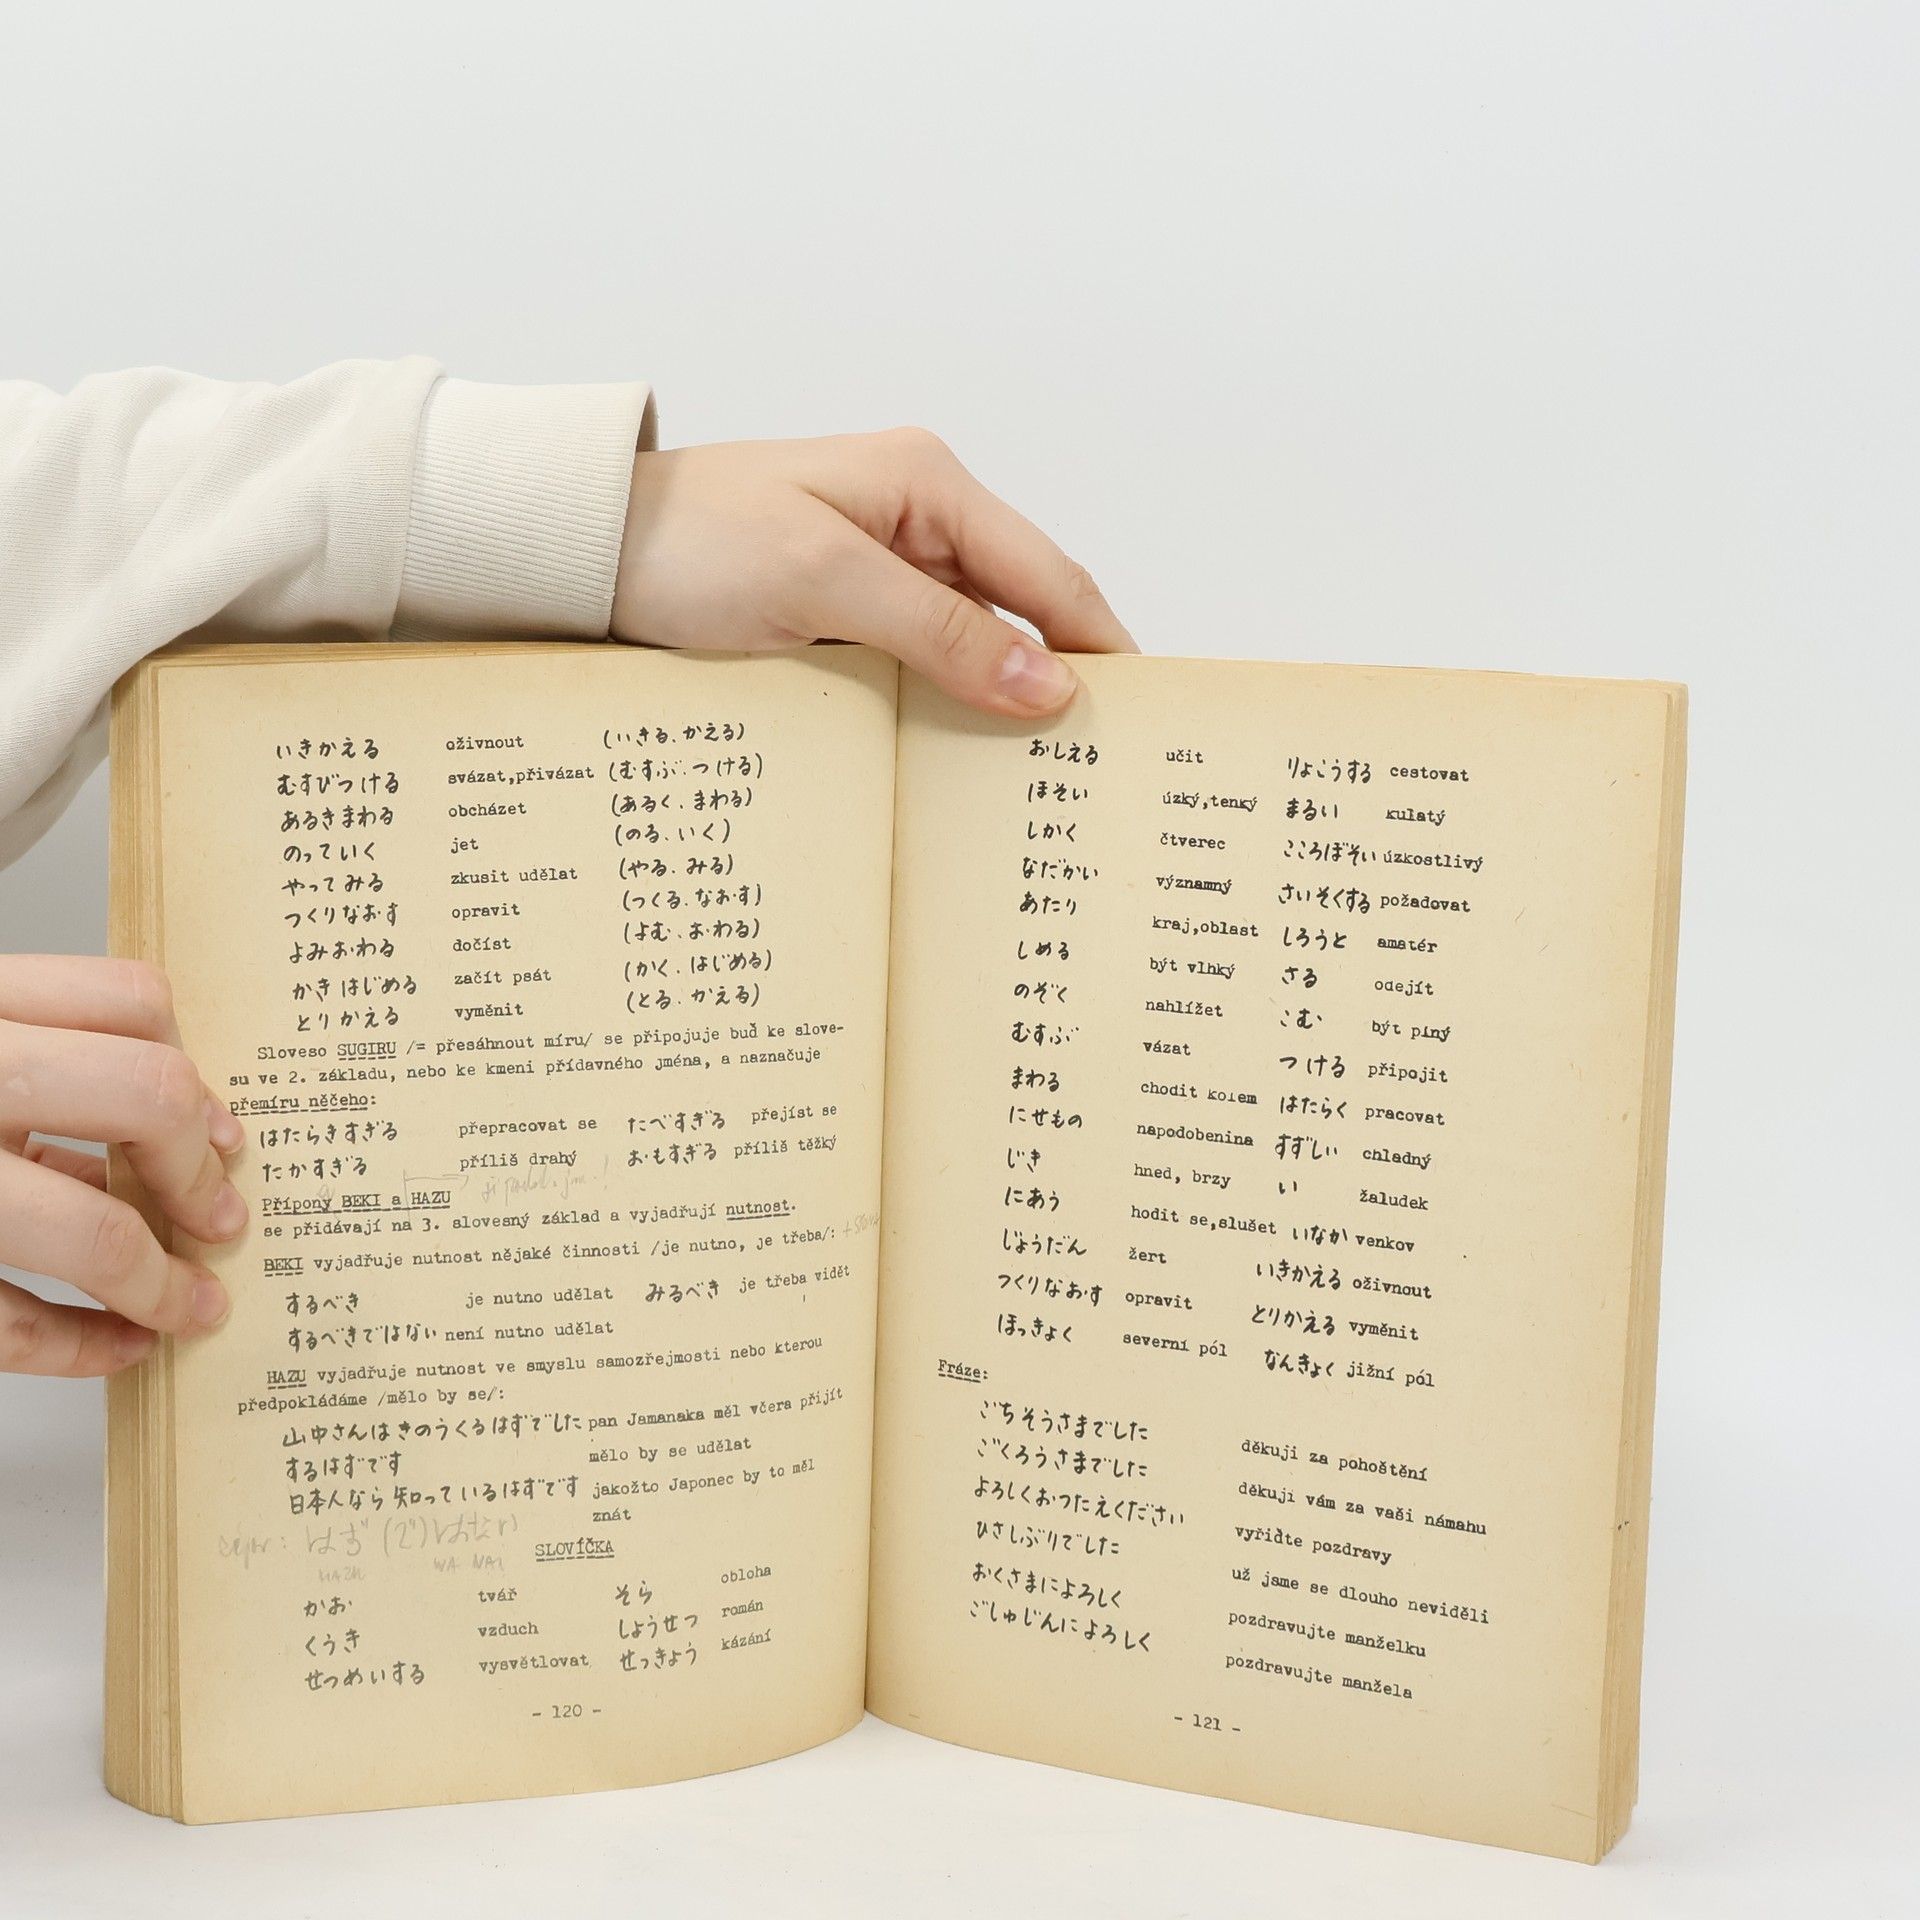 いきかえる oživnout (いきる、かえる)
むすびつける svázat,přivázat (むすぶ、つける)
あるきまわる obcházet (あるく、まわる)
のっていく jet (のる、いく)
やってみる zkusit udělat (やる、みる)
つくりなおす opravit (つくる、なおす)
よみおわる dočíst (よむ、おわる)
かきはじめる začít psát (かく、はじめる)
とりかえる vyměnit (とる、かえる)
Sloveso SUGIRU /= přesáhnout míru/ se připojuje buď ke slove-
su ve 2. základu, nebo ke kmeni přídavného jména, a naznačuje
přemíru něčeho:
はたらきすぎる přepracovat se たべすぎる přejíst se
たかすぎる příliš drahý おもすぎる příliš těžký
Přípony BEKI a HAZU
se přidávají na 3. slovesný základ a vyjadřují nutnost.
BEKI vyjadřuje nutnost nějaké činnosti /je nutno, je třeba/:
するべき je nutno udělat みるべき je třeba vidět
するべきではない není nutno udělat
HAZU vyjadřuje nutnost ve smyslu samozřejmosti nebo kterou
předpokládáme /mělo by se/:
山中さんはきのうくるはずでした pan Jamanaka měl včera přijít
するはずです mělo by se udělat
日本人なら知っているはずです jakožto Japonec by to měl
znát
はず (で)はない
HAZU WA NAI
SLOVÍČKA
かお tvář そら obloha
くうき vzduch しょうせつ román
せつめいする vysvětlovat せっきょう kázání
- 120 -
おしえる učit りょこうする cestovat
ほそい úzký,tenký まるい kulatý
しかく čtverec こころぼそい úzkostlivý
なだかい významný さいそくする požadovat
あたり kraj,oblast しろうと amatér
しめる být vlhký さる odejít
のぞく nahlížet こむ být plný
むすぶ vázat つける připojit
まわる chodit kolem はたらく pracovat
にせもの napodobenina すずしい chladný
じき hned, brzy い žaludek
にあう hodit se,slušet いなか venkov
じょうだん žert いきかえる oživnout
つくりなおす opravit とりかえる vyměnit
ほっきょく severní pól なんきょく jižní pól
Fráze:
ごちそうさまでした děkuji za pohoštění
ごくろうさまでした děkuji vám za vaši námahu
よろしくおつたえください vyřiďte pozdravy
ひさしぶりでした už jsme se dlouho neviděli
おくさまによろしく pozdravujte manželku
ごしゅじんによろしく pozdravujte manžela
- 121 -